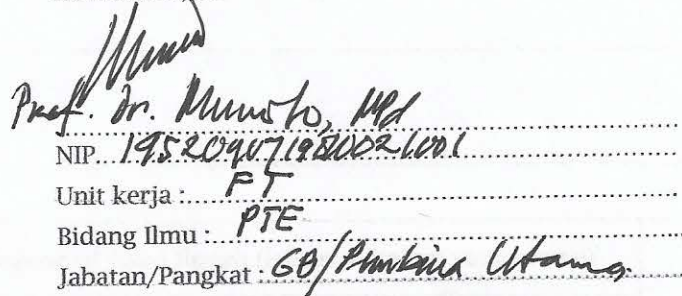 Prof. Dr. Munoto, MPd
NIP. 195209071980021001
Unit kerja : FT
Bidang Ilmu : PTE
Jabatan/Pangkat : GB/Pembina Utama